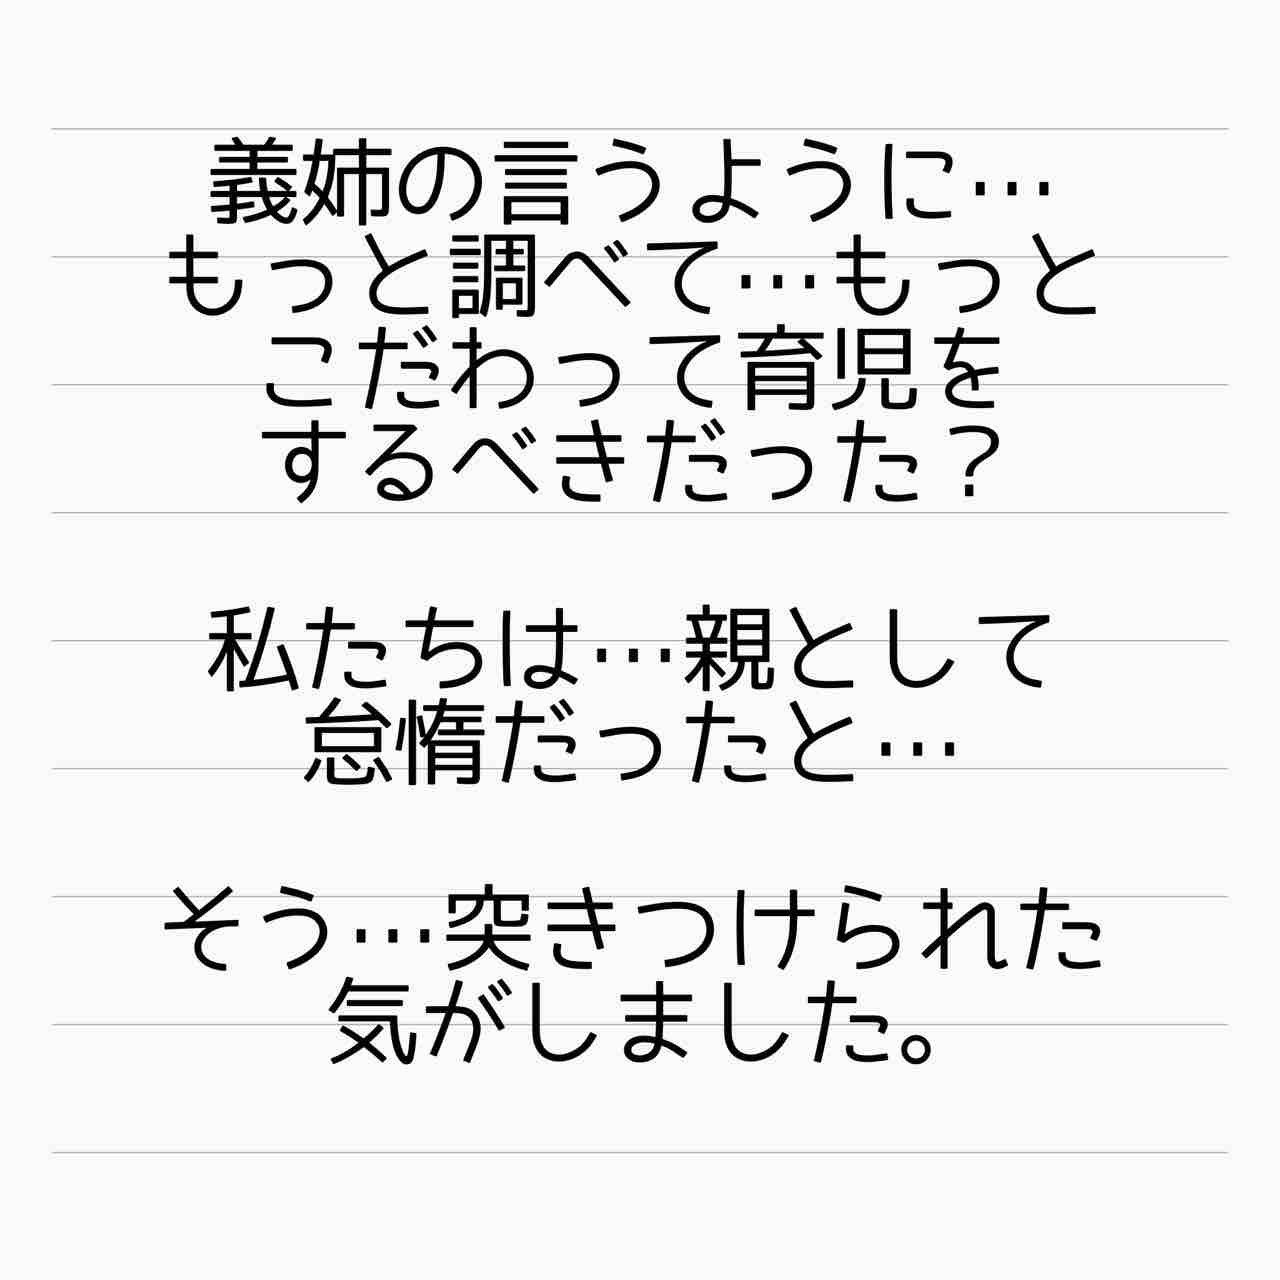 義姉の言うように…
もっと調べて…もっと
こだわって育児を
するべきだった？
私たちは…親として
怠惰だったと…
そう…突きつけられた
気がしました。